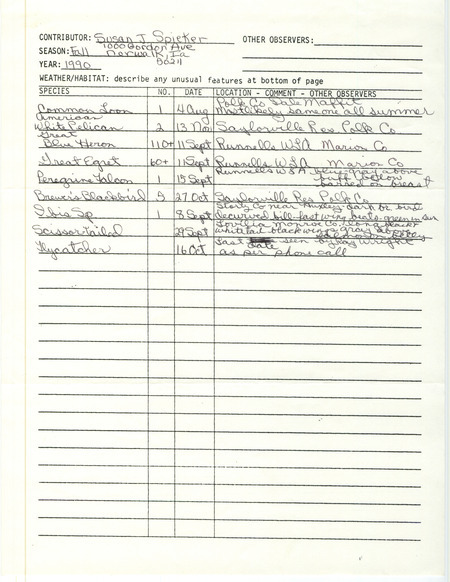 CONTRIBUTOR: Susan J Spieker OTHER OBSERVERS:
SEASON: Fall 1000 Gordon Ave
Norwalk, Ia
YEAR: 1990 50211
WEATHER/HABITAT: describe any unusual features at bottom of page
SPECIES NO. DATE LOCATION - COMMENT - OTHER OBSERVERS
Polk Co Lake Maffit
Common Loon 1 4 Aug Mostlikely same one all summer
American
White Pelican 2 13 No Saylorville Res Polk Co
Great
Blue Heron 110+ 11 Sept Runnells WSA Marion Co
Great Egret 60+ 11 Sept Runnells WSA Marion Co
Runnells WSA blue gray above
Peregrine Falcon 1 15 Sept buff below
barred on breast
Brewer's Blackbird 5 27 Oct Saylorville Res Polk Co
Story Co near dark bird
Ibis Sp. 1 8 Sept decurved bill fast wing beats green in sun
Lovilia Monroe Co. long black
Scissor tailed 29 Sept white tail black wings gray above
salmon on
Flycatcher 16 Oct Last date seen by Wright
as per phone call